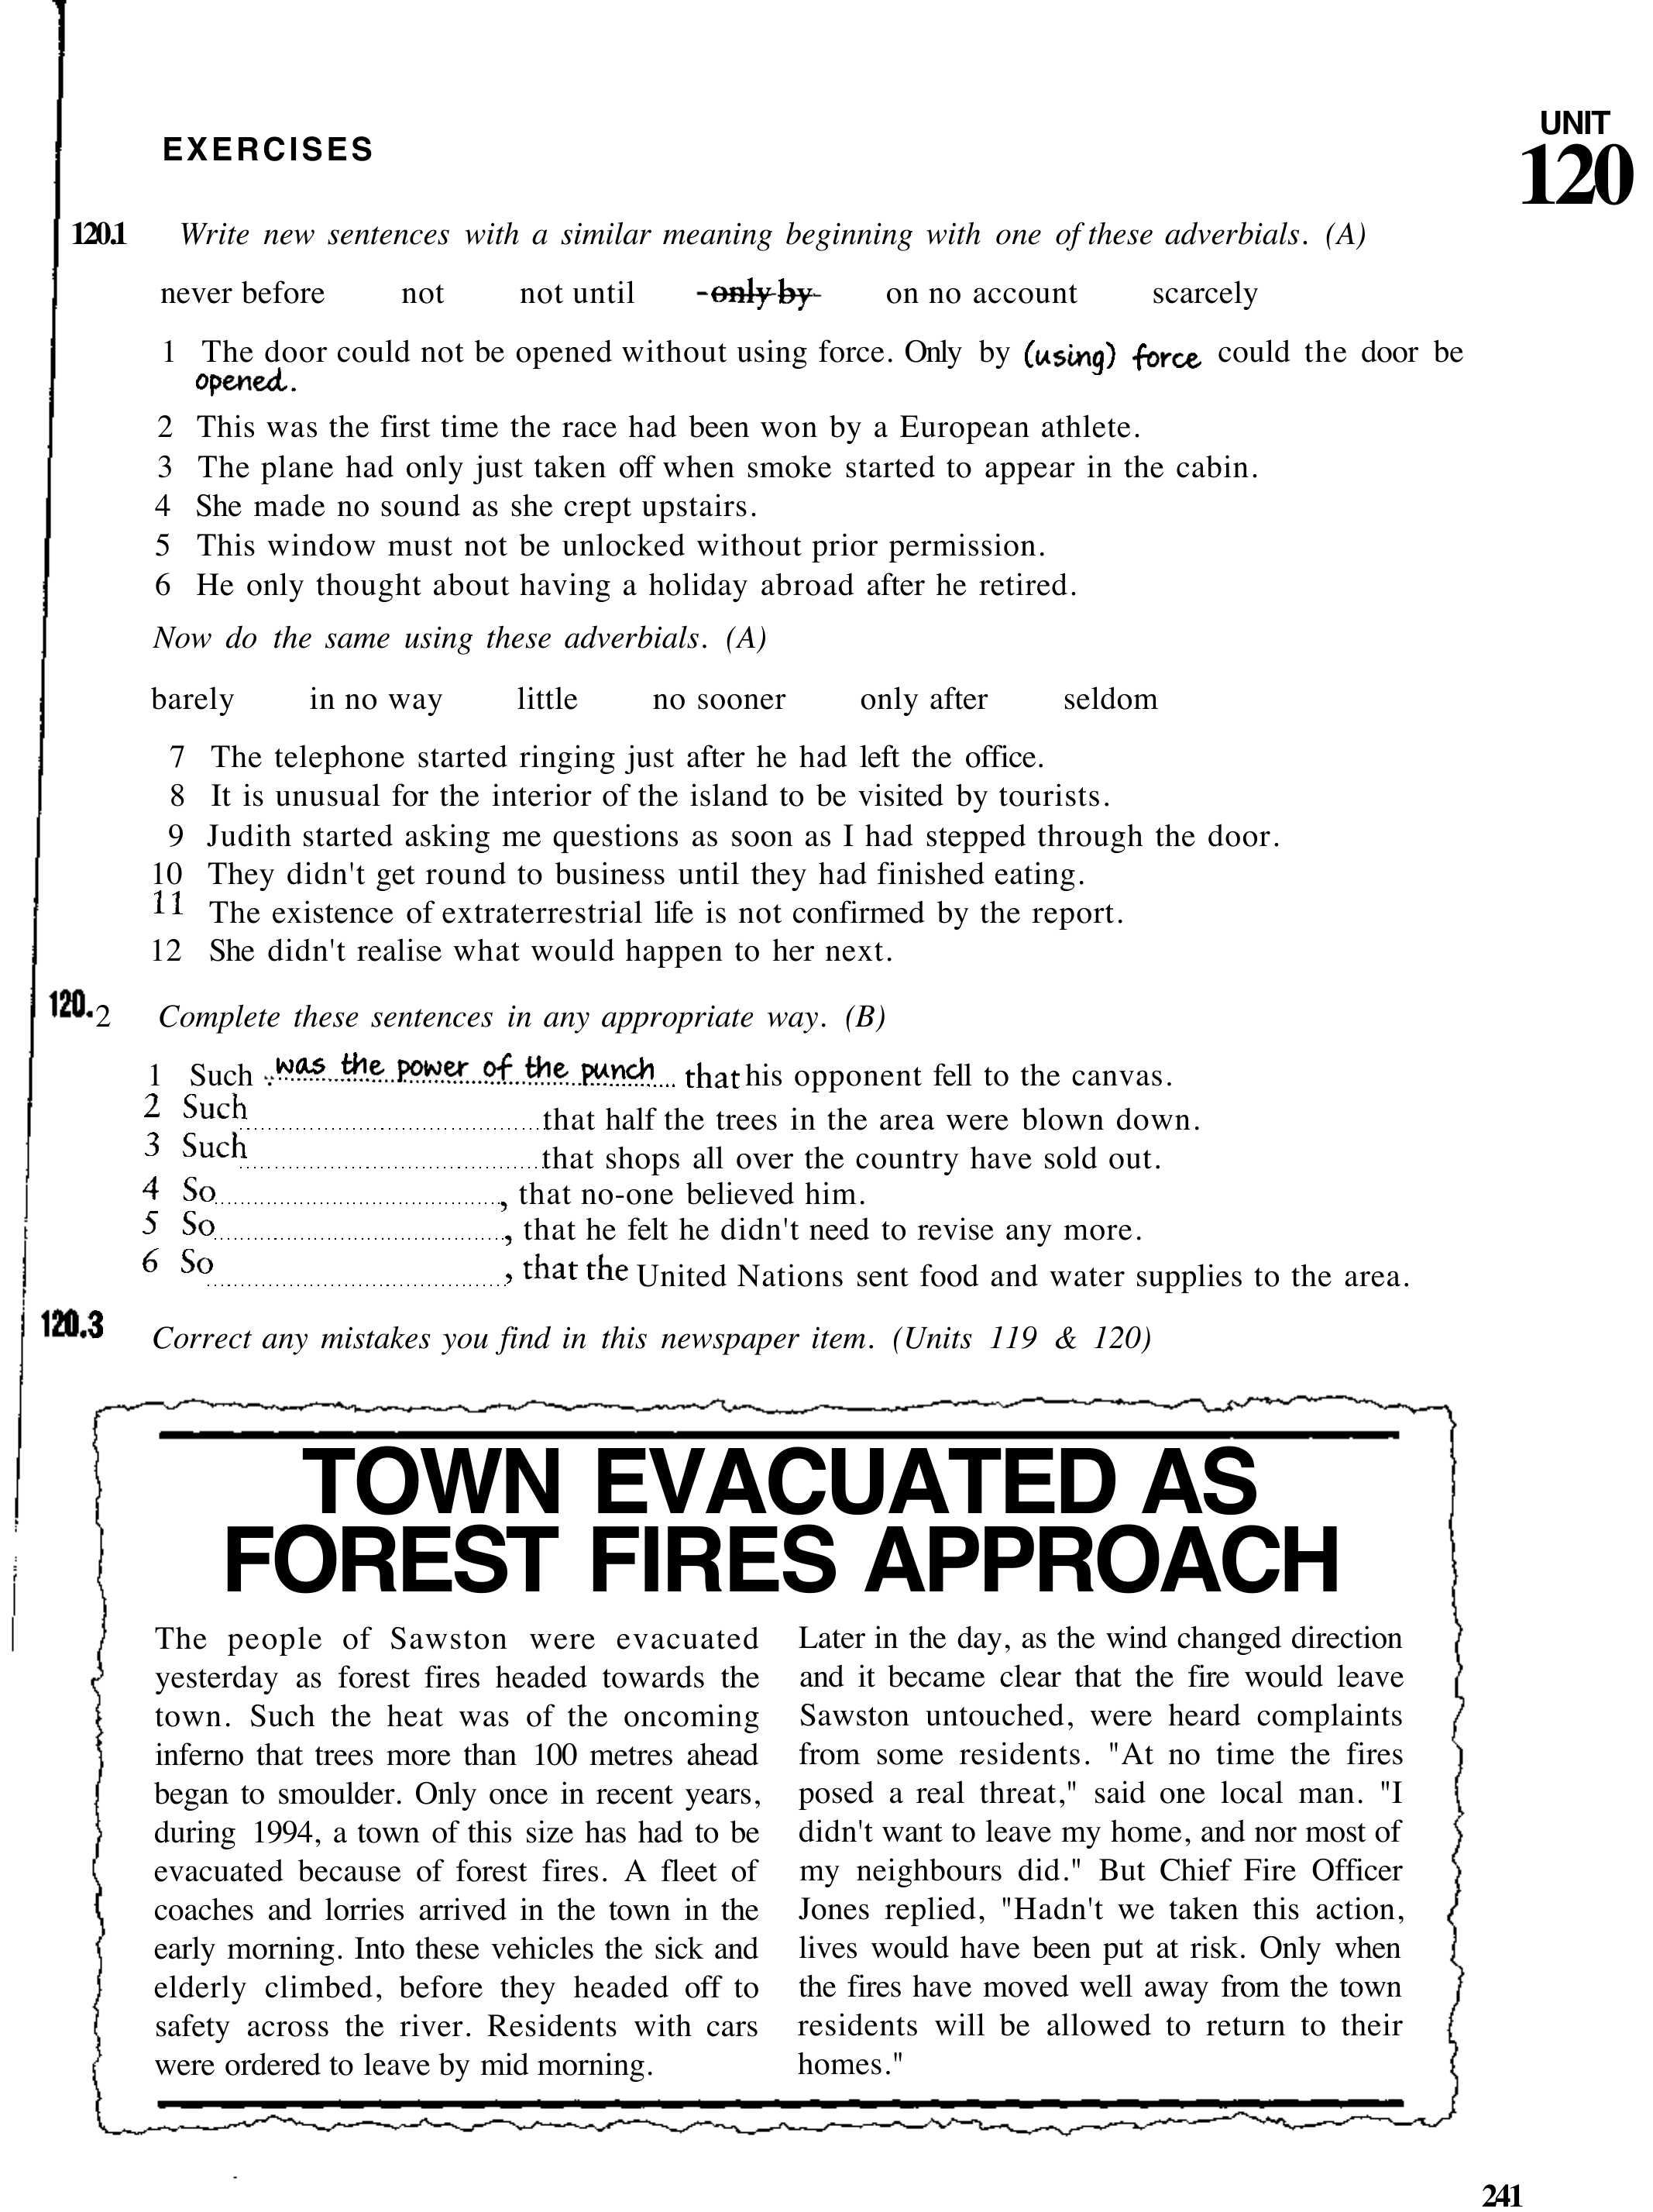 EXERCISES
UNIT
120
120.1 Write new sentences with a similar meaning beginning with one of these adverbials. (A)
never before not not until only by on no account scarcely
1 The door could not be opened without using force. Only by (using) force could the door be
opened.
2 This was the first time the race had been won by a European athlete.
3 The plane had only just taken off when smoke started to appear in the cabin.
4 She made no sound as she crept upstairs.
5 This window must not be unlocked without prior permission.
6 He only thought about having a holiday abroad after he retired.
Now do the same using these adverbials. (A)
barely in no way little no sooner only after seldom
7 The telephone started ringing just after he had left the office.
8 It is unusual for the interior of the island to be visited by tourists.
9 Judith started asking me questions as soon as I had stepped through the door.
10 They didn't get round to business until they had finished eating.
11 The existence of extraterrestrial life is not confirmed by the report.
12 She didn't realise what would happen to her next.
120.2 Complete these sentences in any appropriate way. (B)
1 Such was the power of the punch that his opponent fell to the canvas.
2 Such ........ that half the trees in the area were blown down.
3 Such ........ that shops all over the country have sold out.
4 So ........, that no-one believed him.
5 So ........, that he felt he didn't need to revise any more.
6 So ........, that the United Nations sent food and water supplies to the area.
120.3 Correct any mistakes you find in this newspaper item. (Units 119 & 120)
TOWN EVACUATED AS
FOREST FIRES APPROACH
The people of Sawston were evacuated
yesterday as forest fires headed towards the
town. Such the heat was of the oncoming
inferno that trees more than 100 metres ahead
began to smoulder. Only once in recent years,
during 1994, a town of this size has had to be
evacuated because of forest fires. A fleet of
coaches and lorries arrived in the town in the
early morning. Into these vehicles the sick and
elderly climbed, before they headed off to
safety across the river. Residents with cars
were ordered to leave by mid morning.
Later in the day, as the wind changed direction
and it became clear that the fire would leave
Sawston untouched, were heard complaints
from some residents. "At no time the fires
posed a real threat," said one local man. "I
didn't want to leave my home, and nor most of
my neighbours did." But Chief Fire Officer
Jones replied, "Hadn't we taken this action,
lives would have been put at risk. Only when
the fires have moved well away from the town
residents will be allowed to return to their
homes."
241